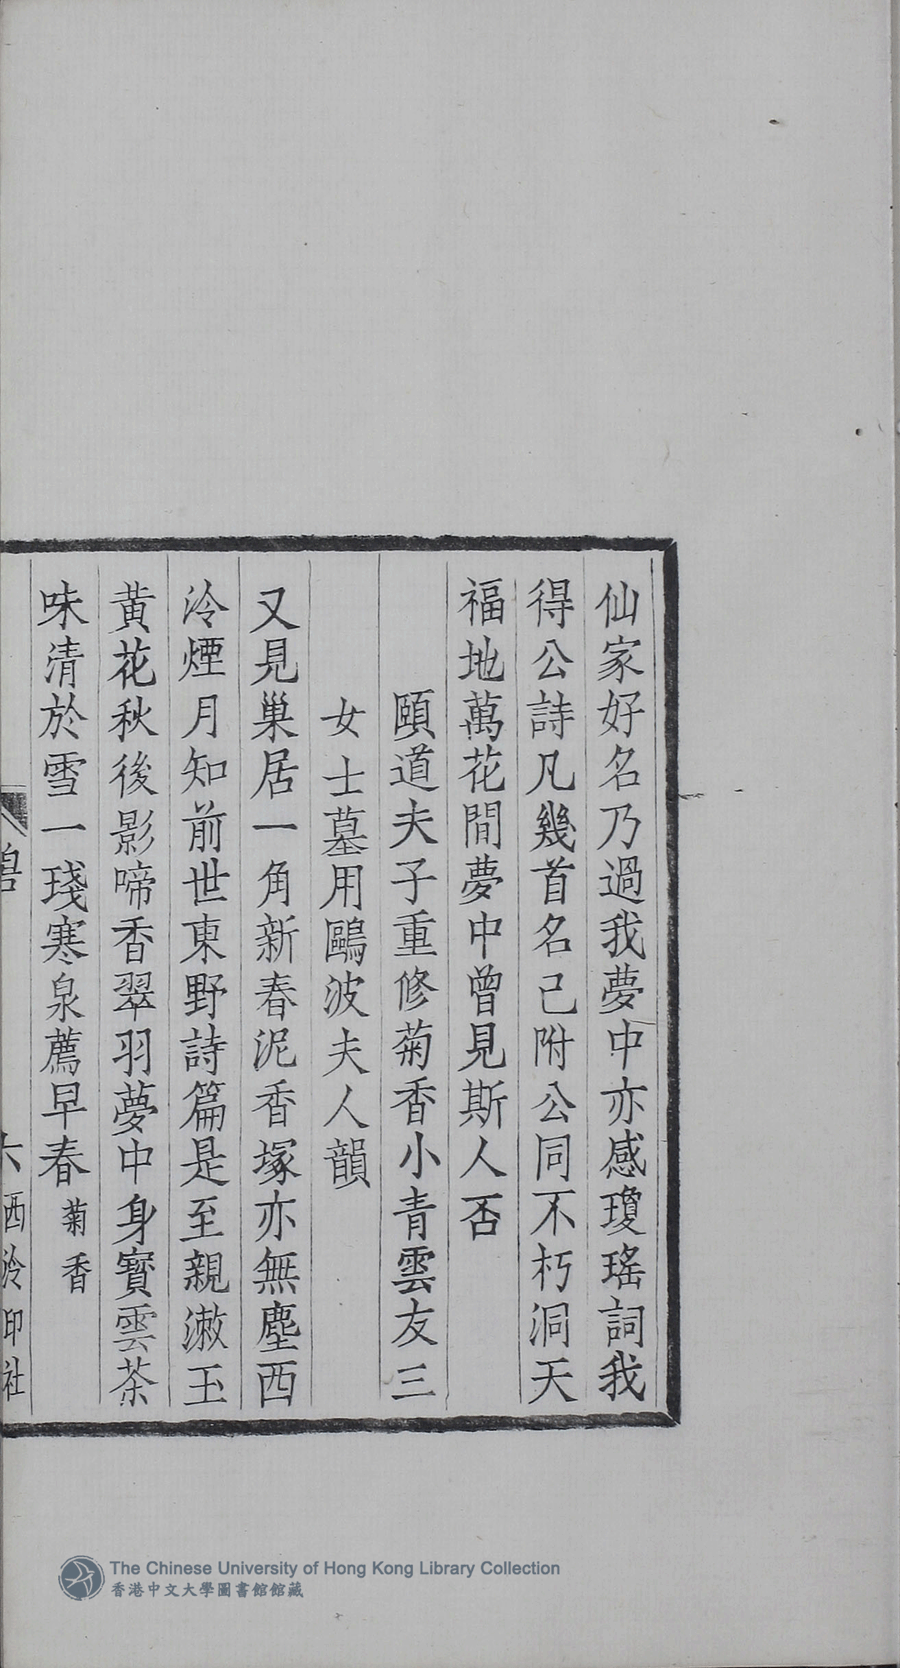 仙家好名乃過我夢中亦感瓊瑤詞我
得公詩凡幾首名已附公同不朽洞天
福地萬花間夢中曾見斯人否
頤道夫子重修菊香小青雲友三
女士墓用鷗波夫人韻
又見巢居一角新春泥香塚亦無塵西
泠煙月知前世東野詩篇是至親漱玉
黃花秋後影啼香翠羽夢中身寶雲茶
味清於雪一琖寒泉薦早春菊香
六
西泠印社
The Chinese University of Hong Kong Library Collection
香港中文大學圖書館館藏